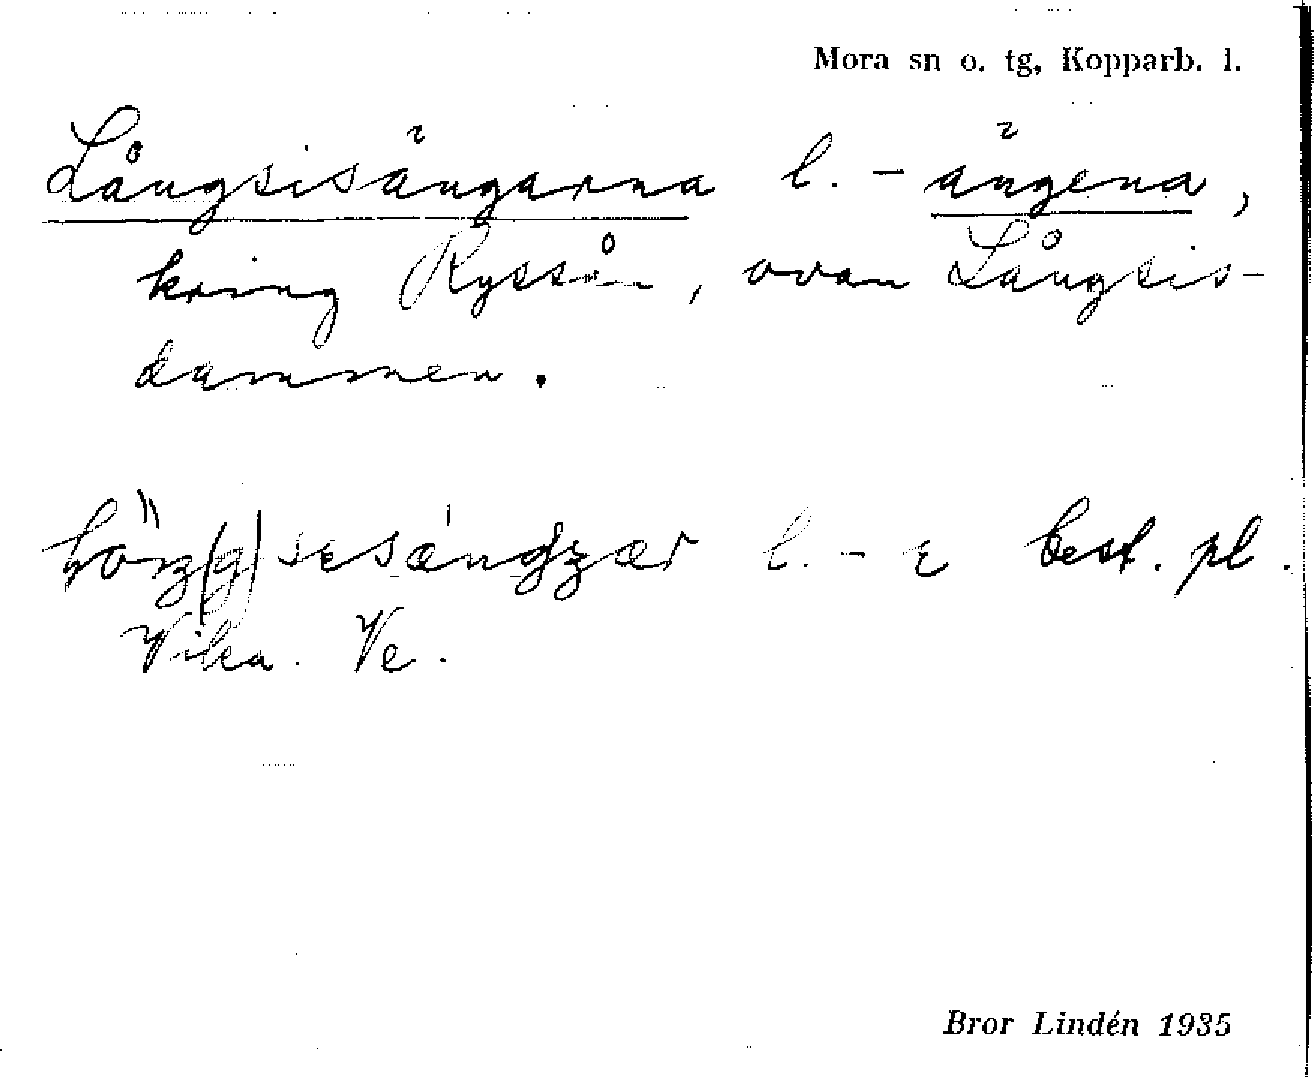 Mora sn o. tg, Kopparb. l.
Långsisängarna l. - ängena,
kring Ryssån, ovan Långsis-
dammen.
l. - best. pl.
Vika. Ve.
Bror Lindén 1935